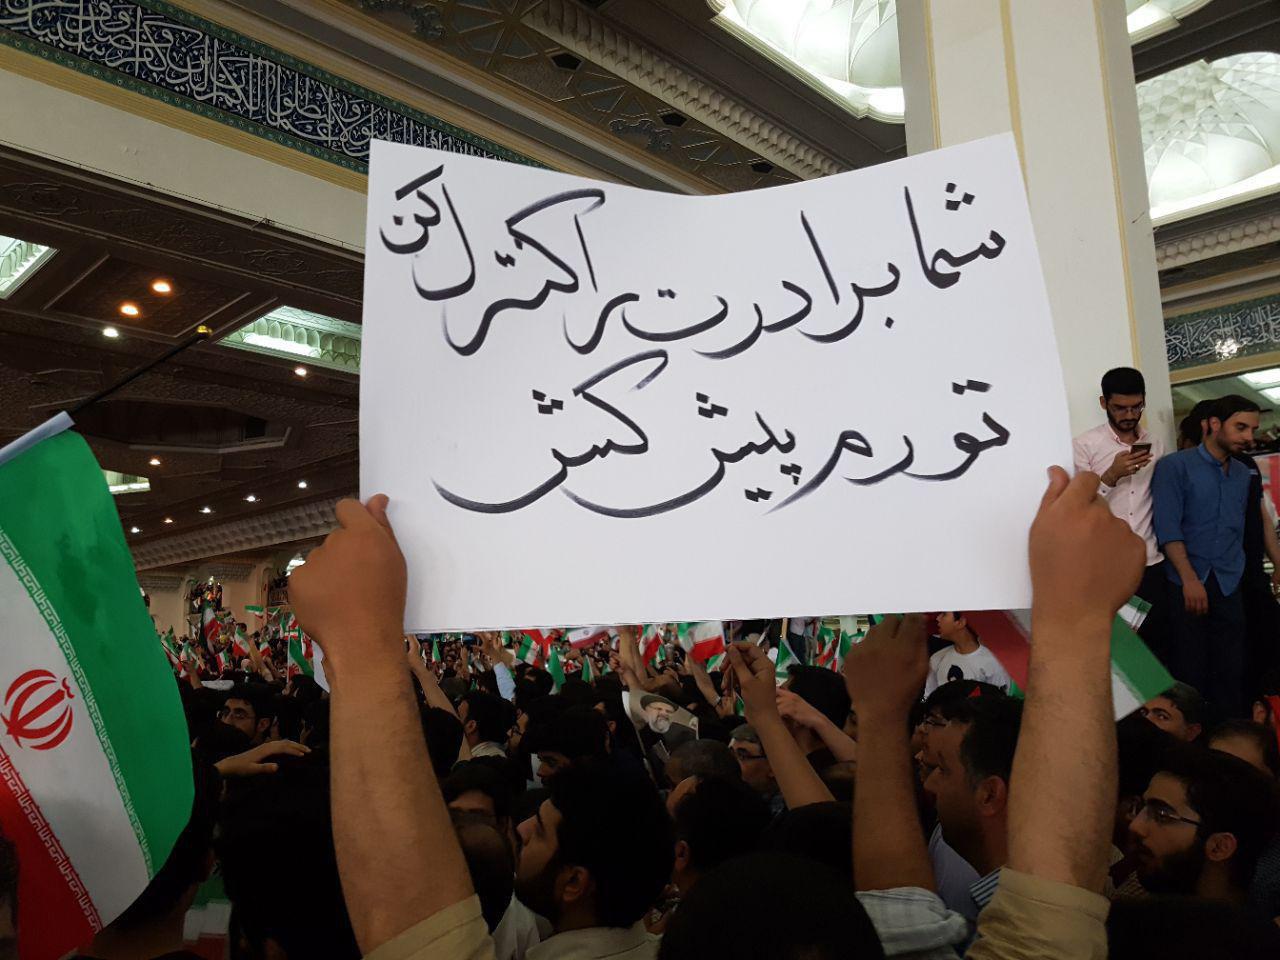 شما برادرت را کنترل کن
تورم پیش کش